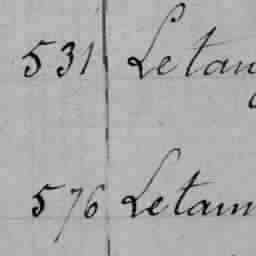 531 Letan
576 Letam